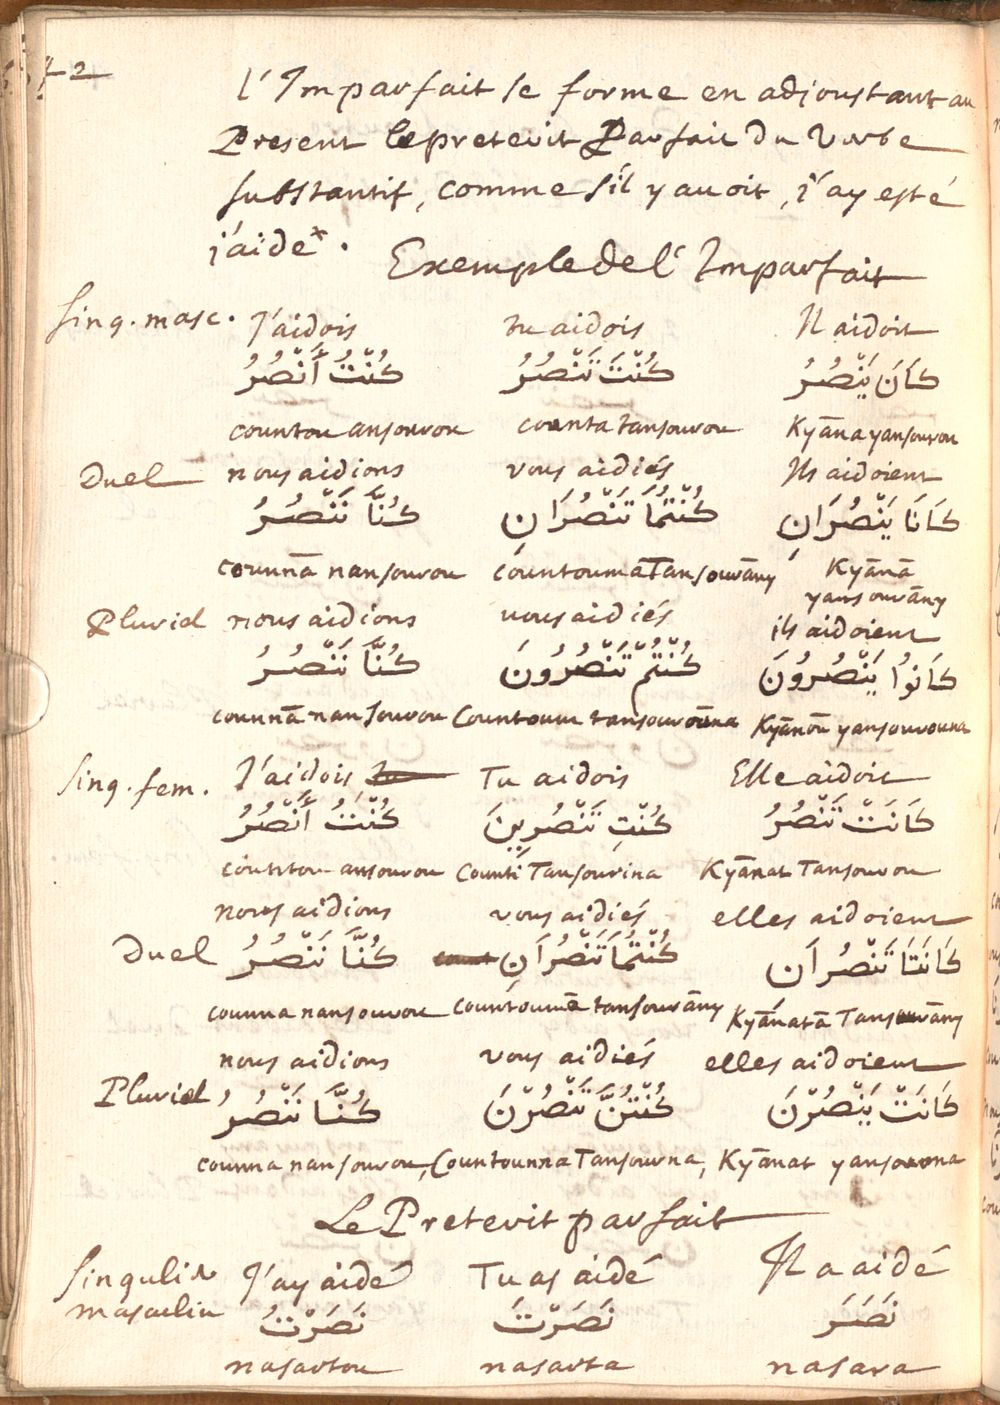 42
l'Imparfait se forme en adjoustant au
Present le preterit Parfait du Verbe
substantif, comme s'il y auoit, i'ay esté
j'aide. Exemple de l'Imparfait
Sing. masc. J'aidois tu aidois Il aidoit
كُنْتُ أَنْصُرُ كُنْتَ تَنْصُرُ كَانَ يَنْصُرُ
countou ansourou counta tansourou Kyāna yansourou
Duel nous aidions vous aidiés Ils aidoient
كُنَّا نَنْصُرُ كُنْتُمَا تَنْصُرَانِ كَانَا يَنْصُرَانِ
counnā nansourou countoumā Tansourāny Kyānā
yansourāny
Pluriel nous aidions vous aidiés ils aidoient
كُنَّا نَنْصُرُ كُنْتُمْ تَنْصُرُونَ كَانُوا يَنْصُرُونَ
counnā nansourou Countoum tansourouna Kyānou yansourouna
Sing. fem. J'aidois Tu aidois Elle aidoit
كُنْتُ أَنْصُرُ كُنْتِ تَنْصُرِينَ كَانَتْ تَنْصُرُ
countou ansourou Counti Tansourina Kyānat Tansourou
nous aidions vous aidiés elles aidoient
Duel كُنَّا نَنْصُرُ كُنْتُمَا تَنْصُرَانِ كَانَتَا تَنْصُرَان
counna nansourou countoumā tansourāny Kyānatā Tansourāny
nous aidions vous aidiés elles aidoient
Pluriel كُنَّا نَنْصُرُ كُنْتُنَّ تَنْصُرْنَ كَانَتْ يَنْصُرْنَ
counna nansourou, Countounna Tansourna, Kyānat yansorona
Le Preterit parfait
Singulier J'ay aidé Tu as aidé Il a aidé
masculin نَصَرْتُ نَصَرْتَ نَصَرَ
nasartou nasarta nasara